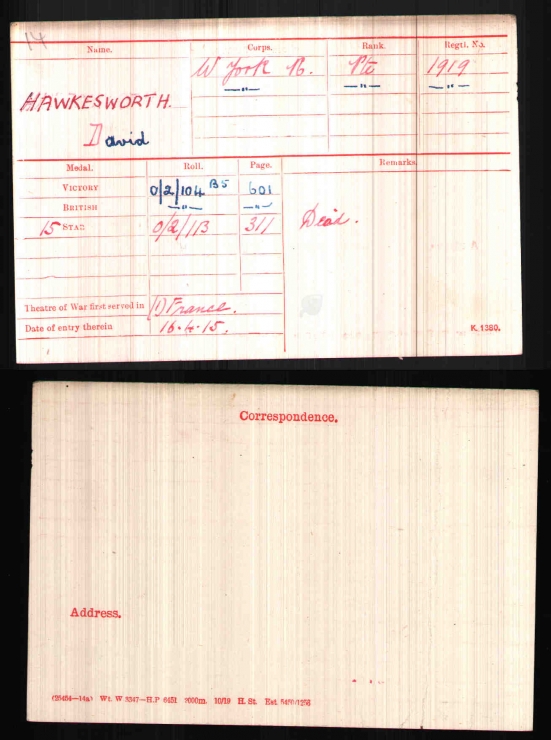 14
Name. Corps. Rank. Regtl. No.
W York R. Pte 1919
HAWKESWORTH. —"— —"— —"—
David
Medal. Roll. Page. Remarks.
VICTORY O/2/104 B5 601
BRITISH —"— —"—
15 STAR O/2/11B 311 Dead.
Theatre of War first served in (1) France.
Date of entry therein 16.4.15. K. 1380.
Correspondence.
Address.
Wt. W 5347—H.P 2000m. 10/19 H. St.